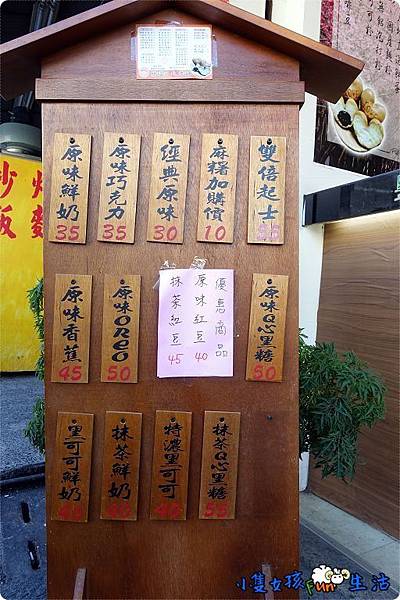 原味鮮奶 35
原味巧克力 35
經典原味 30
麻糬加購價 10
雙倍起士
原味香蕉 45
原味oreo 50
優惠商品
原味紅豆 40
抹茶紅豆 45
原味Q心黑糖 50
黑可可鮮奶 40
抹茶鮮奶 40
特濃黑可可 40
抹茶Q心黑糖 55
炒
飯
麵
小隻女孩 Fun 生活